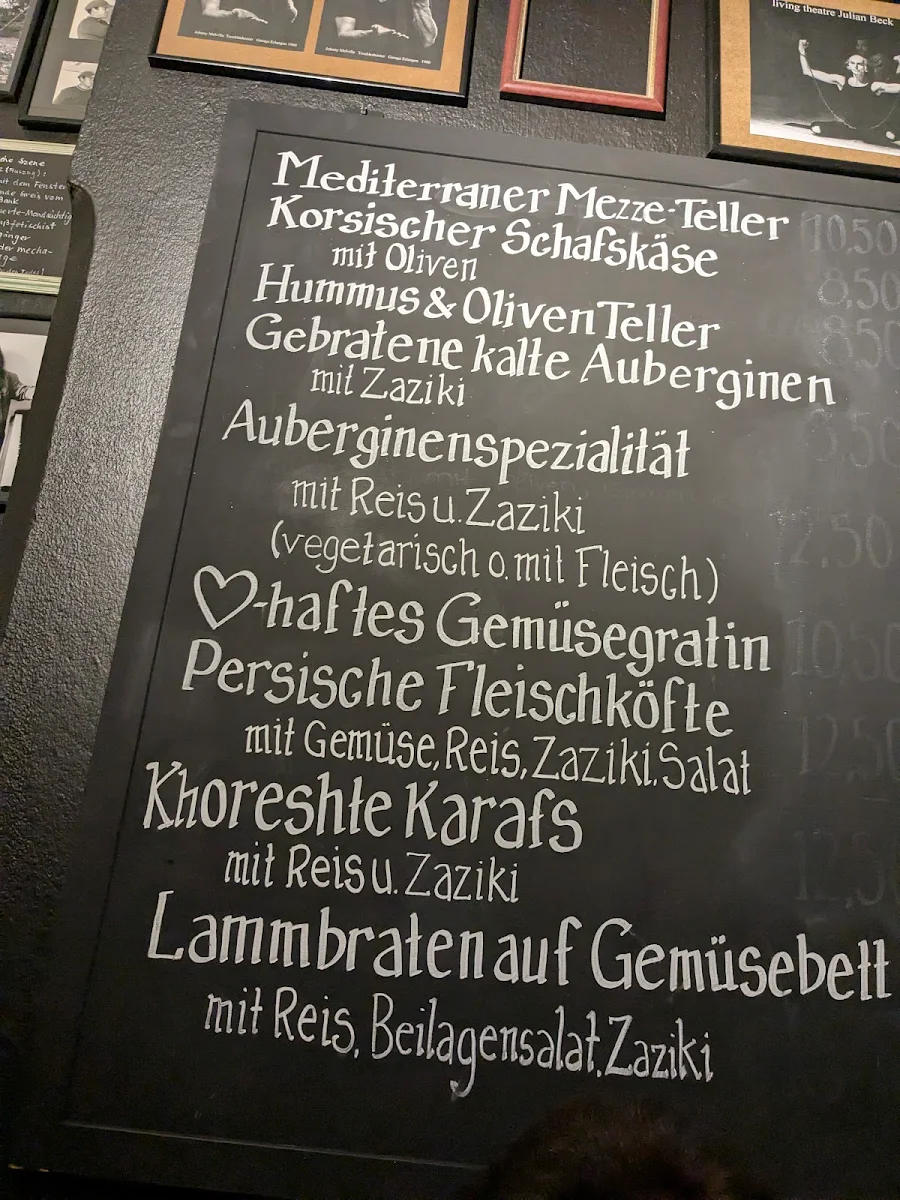 living theatre Julian Beck
Mediterraner Mezze-Teller 10,50
Korsischer Schafskäse
mit Oliven 8,50
Hummus & Oliven Teller 8,50
Gebratene kalte Auberginen
mit Zaziki
Auberginenspezialität
mit Reis u. Zaziki
(vegetarisch o. mit Fleisch)
♡-haftes Gemüsegratin 10,50
Persische Fleischköfte
mit Gemüse, Reis, Zaziki, Salat 12,50
Khoreshte Karafs
mit Reis u. Zaziki
Lammbraten auf Gemüsebett
mit Reis, Beilagensalat, Zaziki